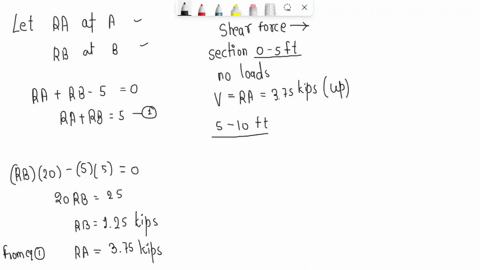 Let RA at A
RB at B
RA + RB - 5 = 0
RA + RB = 5 — ①
(RB)(20) - (5)(5) = 0
20 RB = 25
RB = 1.25 kips
from eq ① RA = 3.75 kips
Shear force →
section 0-5ft
no loads
V = RA = 3.75 kips (up)
5-10 ft